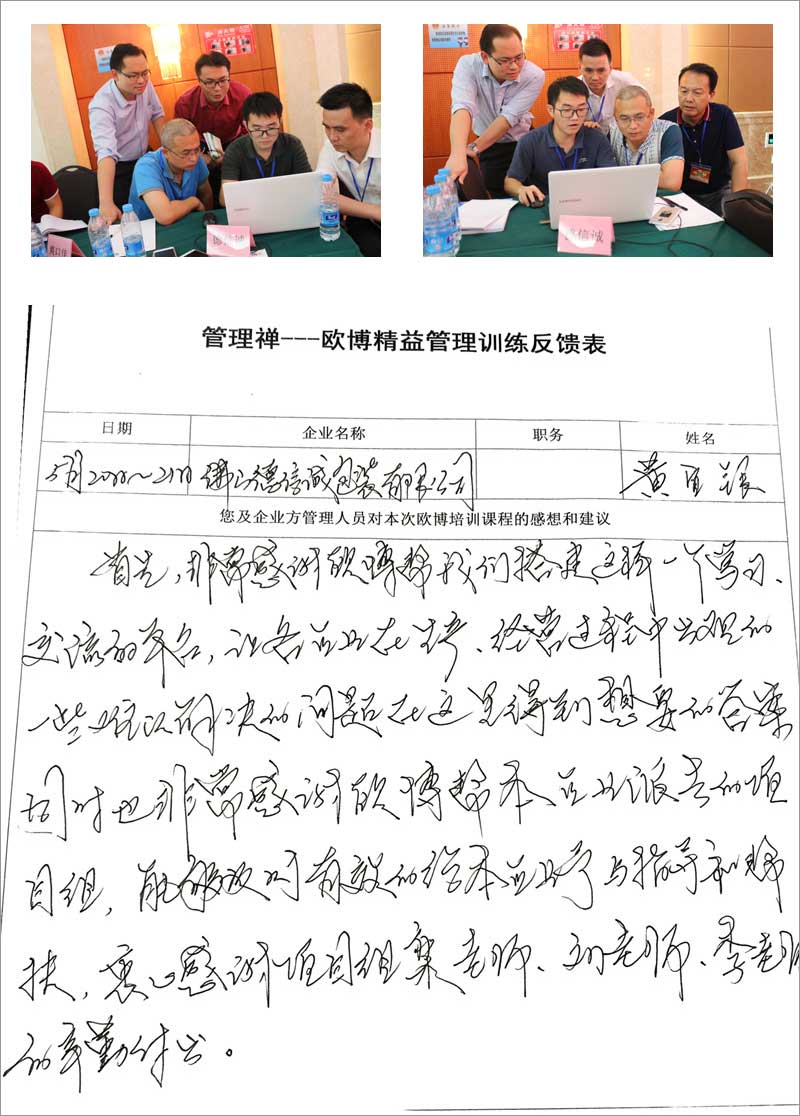 信诚
管理禅---欧博精益管理训练反馈表
日期 企业名称 职务 姓名
5月20日～21日 佛山德信诚包装有限公司 黄
您及企业方管理人员对本次欧博培训课程的感想和建议
首先，非常感谢欧博给我们搭建这样一个学习、
交流的平台，让各企业在生产、经营过程中出现的
一些难以解决的问题在这里得到想要的答案
同时也非常感谢欧博给本企业派去的项
目组，能够及时有效的给本企业予与指导和帮
扶，衷心感谢项目组 老师、刘老师、李老师
的辛勤付出。